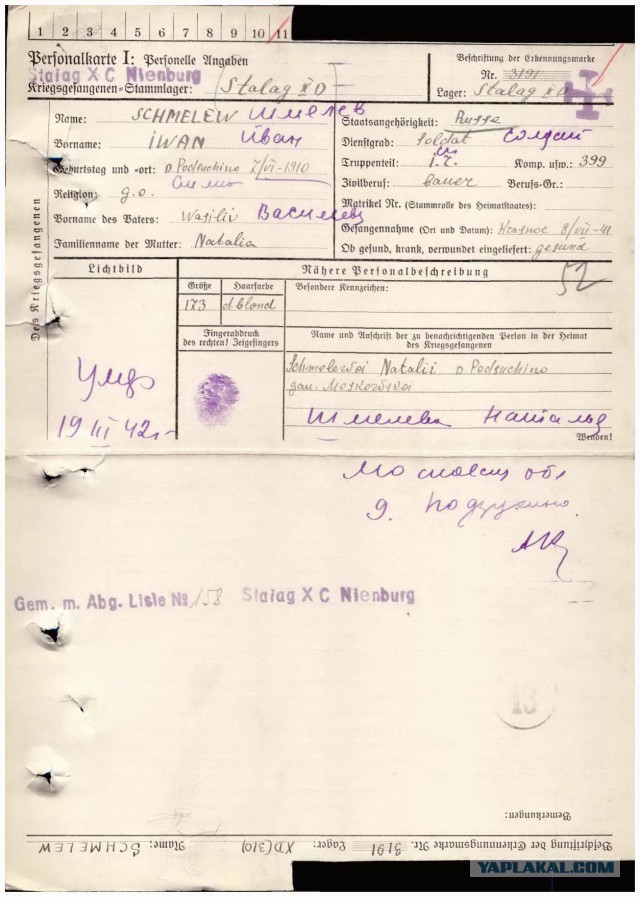 1 2 3 4 5 6 7 8 9 10 11
Personalkarte I: Personelle Angaben
Stalag X C Nienburg
Kriegsgefangenen-Stammlager: Stalag X D
Beschriftung der Erkennungsmarke
Nr. 3191
Lager: Stalag X D
Des Kriegsgefangenen
Name: SCHMELEW Шмелев
Vorname: IWAN Иван
Geburtstag und -ort: D. Podsuchino 7/VI-1910
Religion: g.o.
Vorname des Vaters: Wasiliv
Familienname der Mutter: Natalia
Staatsangehörigkeit: Russe
Dienstgrad: Soldat солдат
Truppenteil: I.R. Komp. usw.: 399
Zivilberuf: Bauer Berufs-Gr.:
Matrikel Nr. (Stammrolle des Heimatstaates):
Gefangennahme (Ort und Datum): Krasnoe 8/VII-41
Ob gesund, krank, verwundet eingeliefert: gesund
Lichtbild
Nähere Personalbeschreibung
52
Größe Haarfarbe Besondere Kennzeichen:
173 d.blond
Fingerabdruck
des rechten! Zeigefingers
Name und Anschrift der zu benachrichtigenden Person in der Heimat
des Kriegsgefangenen
Schmelewoi Natalii D. Podsuchino
Moskowskoi
Шмелева
Wenden!
Умер
19 III 42г.
обл
д.
Gem. m. Abg. Liste № 158 Stalag X C Nienburg
13
Bemerkungen:
Beschriftung der Erkennungsmarke Nr. 3191 Lager: XD(310) Name: SCHMELEW
YAPLAKAL.COM